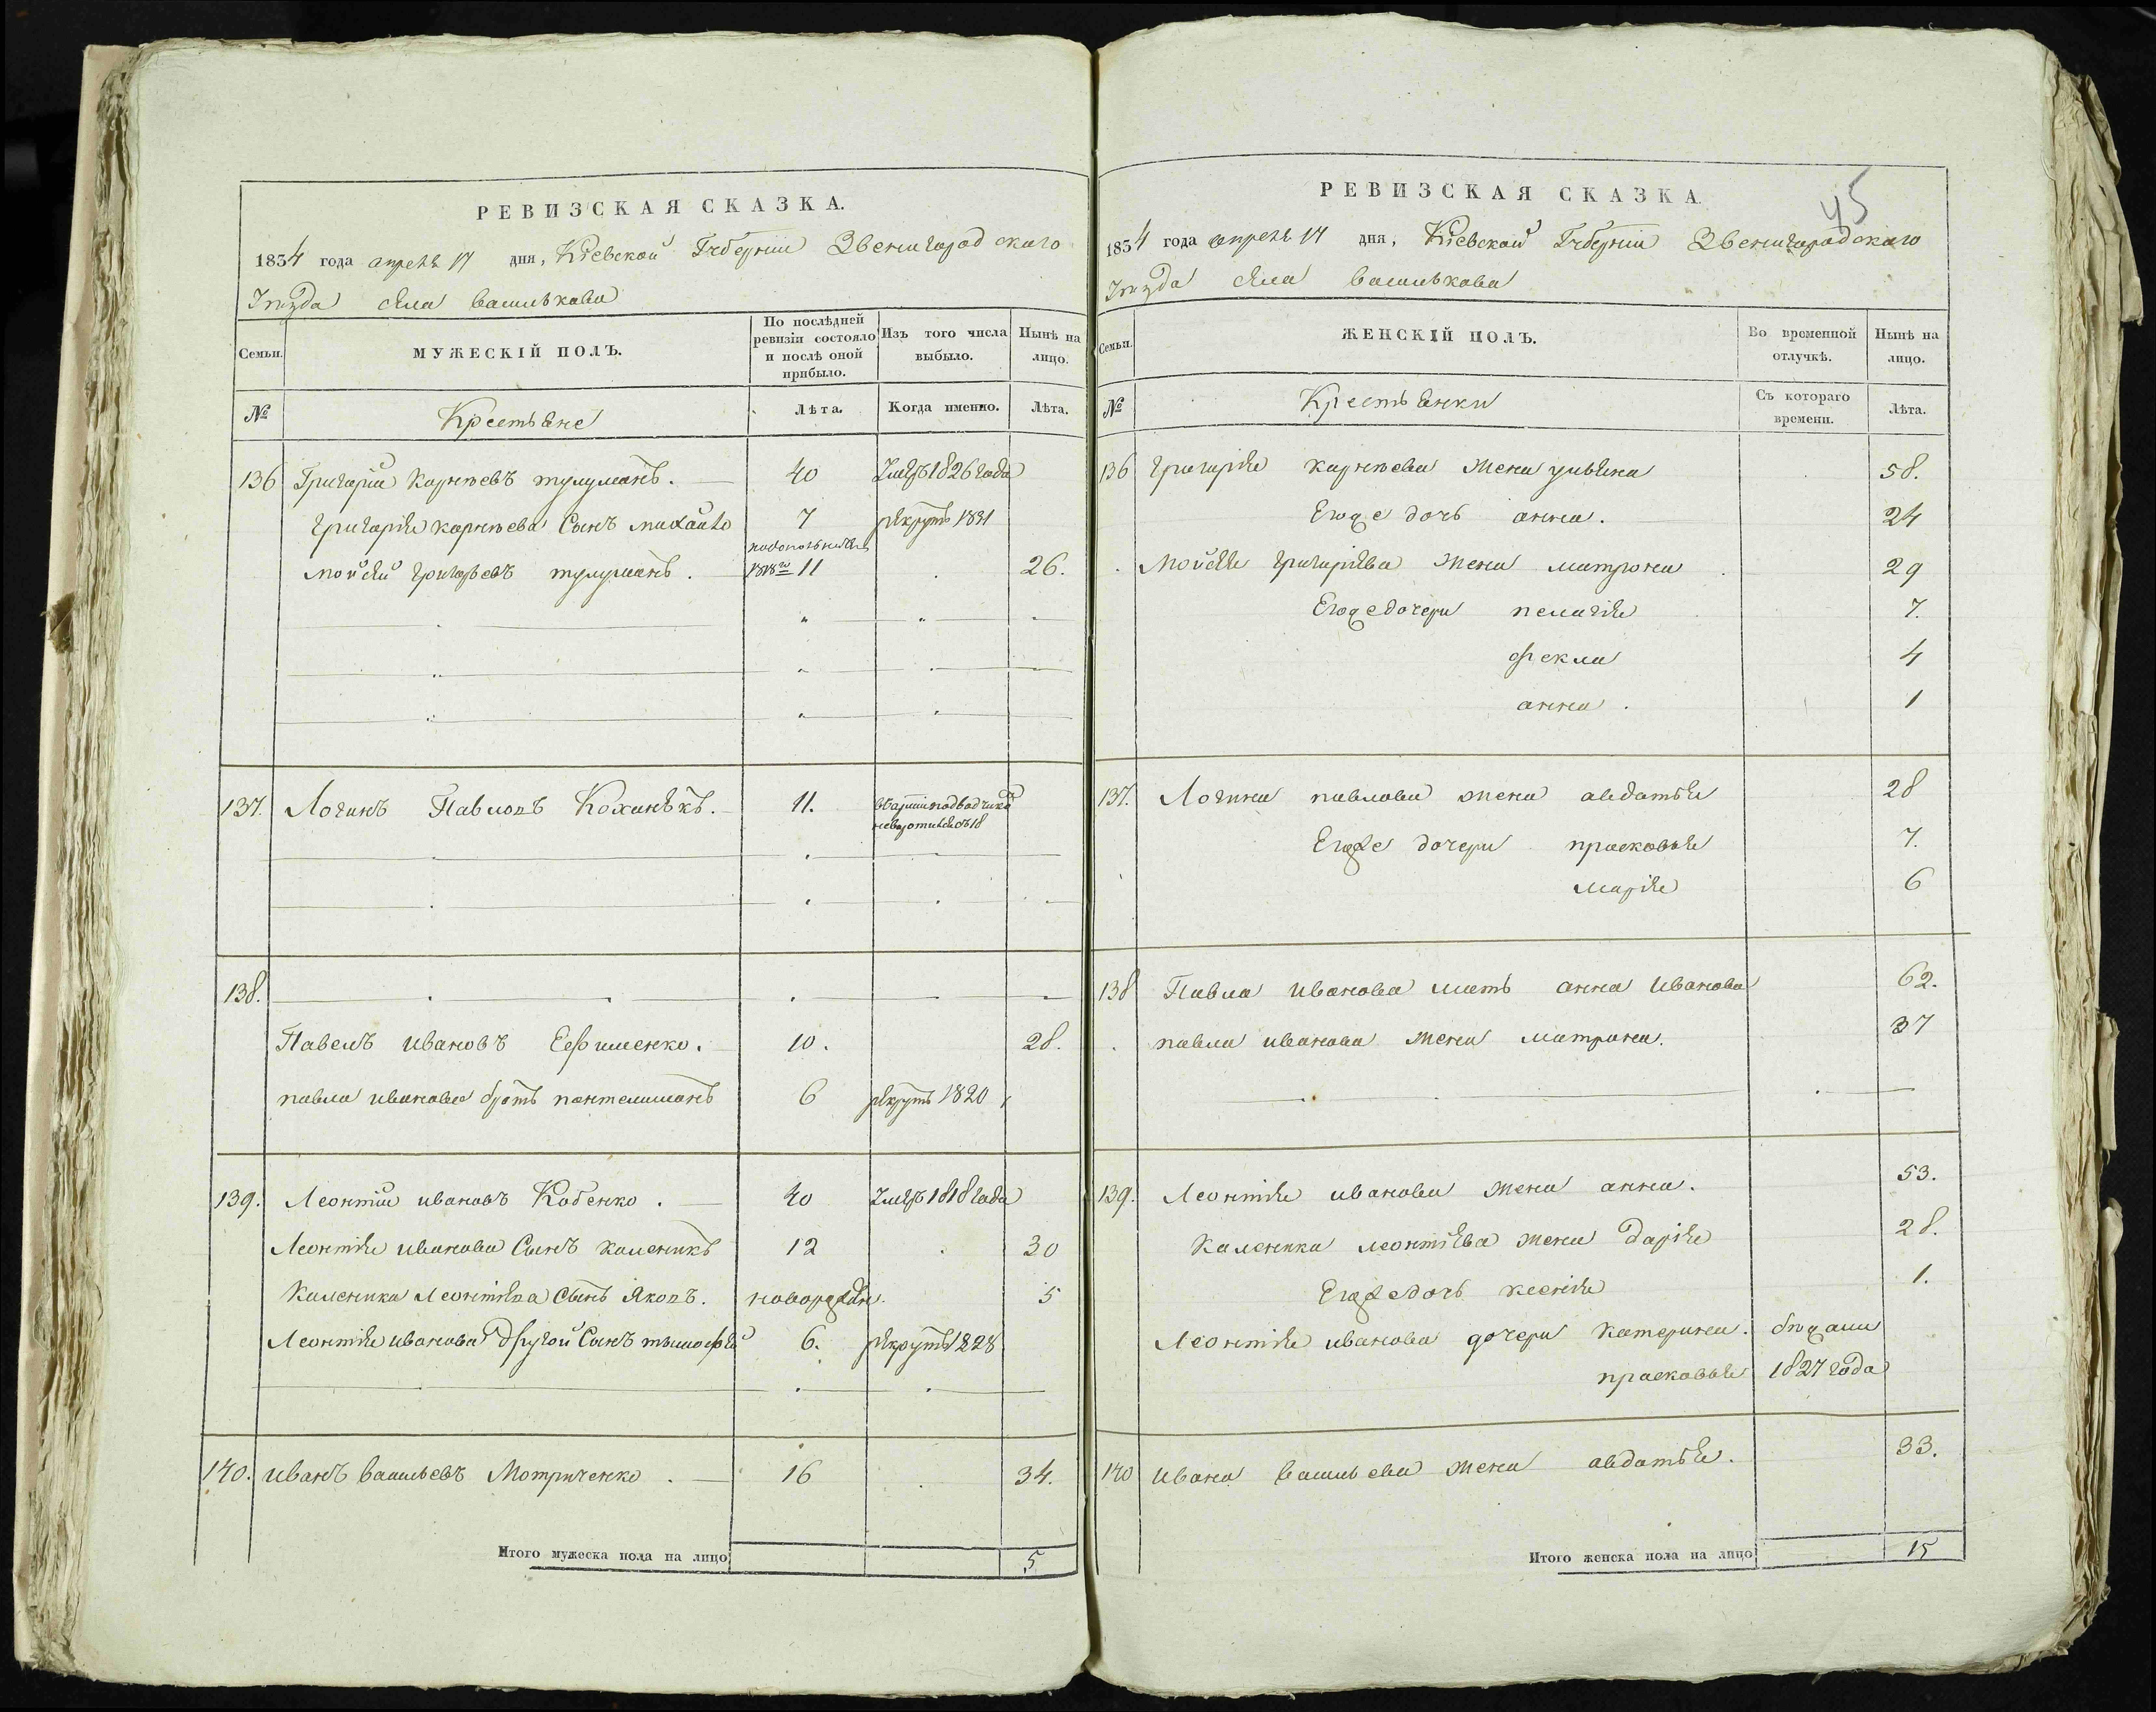 РЕВИЗСКАЯ СКАЗКА.
1834 года апреля 17 дня, Кіевской Губерніи Звенигородского
Уезда села васильkова
Семьи.
МУЖЕСКІЙ ПОЛЪ.
По послѣдней ревизіи состояло и послѣ оной прибыло.
Изъ того числа выбыло.
Нынѣ на лицо.
№
Крестьяне
Лѣта.
Когда именно.
Лѣта.
136 Григорій Карнѣевъ тулуманъ. 40 Умеръ 1826 года
григорія карнѣева Сынъ михайло 7 рекрутъ 1831
мойсей григорьевъ тулуманъ. 1818го 11 26.
137. Логинъ Павловъ 11.
138.
Павелъ ивановъ Ефименко. 10. 28.
павла иванова братъ пантелимонъ 6 рекрутъ 1820
139. Леонтій ивановъ Кобенко. 40 Умеръ 1818 года
Леонтія иванова Сынъ каленикъ 12 30
каленика леонтіева Сынъ Яковъ. 5
Леонтія иванова другой Сынъ тымофей 6. рекрутъ 1828
140. иванъ васильевъ Мотриченко. 16 34.
Итого мужеска пола на лицо 5
РЕВИЗСКАЯ СКАЗКА.
45
1834 года апреля 17 дня, Кіевской Губерніи Звенигородского
Уезда села василькова
Семьи.
ЖЕНСКІЙ ПОЛЪ.
Во временной отлучкѣ.
Нынѣ на лицо.
№
Крестьянки
Съ котораго времени.
Лѣта.
136 григорія карнѣева жена ульяна 58.
Егоже дочь анна. 24
Мойсея григоріева жена матрона 29
Егоже дочери пелагія 7.
фекла 4
анна. 1
137. Логина павлова жена авдотья 28
Егоже дочери прасковья 7.
марія 6
138 Павла иванова мать анна Иванова 62.
павла иванова жена матрона. 37
139. Леонтія иванова жена анна. 53.
Каленика леонтіева жена Дарія 28.
Егоже дочь ксенія 1.
Леонтія иванова дочери катерина.
прасковья 1827 года
140 ивана васильева жена авдотья. 33.
Итого женска пола на лицо 15